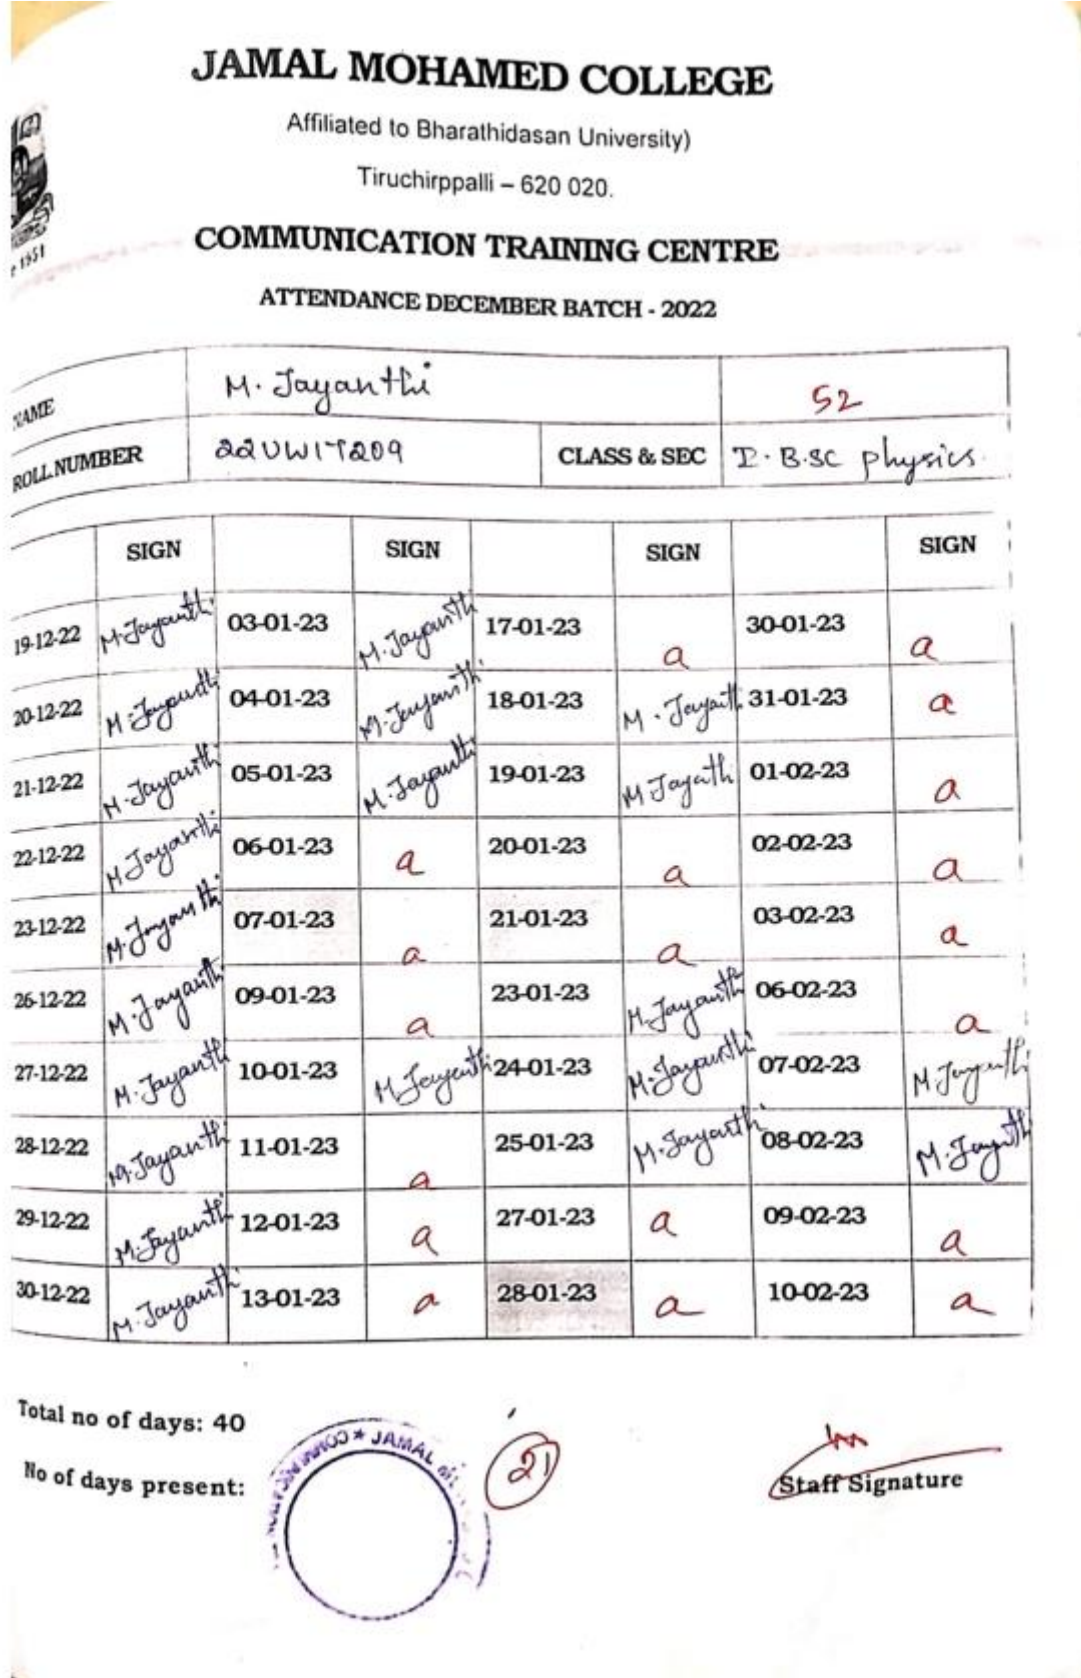 JAMAL MOHAMED COLLEGE
Affiliated to Bharathidasan University)
Tiruchirppalli – 620 020.
COMMUNICATION TRAINING CENTRE
ATTENDANCE DECEMBER BATCH - 2022
NAME M. Jayanthi 52
ROLL.NUMBER 22UWIT209 CLASS & SEC I. B.SC physics.
SIGN SIGN SIGN SIGN
19-12-22 M.Jayanthi 03-01-23 M.Jayanthi 17-01-23 a 30-01-23 a
20-12-22 M.Jayanthi 04-01-23 M.Jayanthi 18-01-23 M.Jayanthi 31-01-23 a
21-12-22 M.Jayanthi 05-01-23 M.Jayanthi 19-01-23 M Jayathi 01-02-23 a
22-12-22 M Jayanthi 06-01-23 a 20-01-23 a 02-02-23 a
23-12-22 M.Jayanthi 07-01-23 a 21-01-23 a 03-02-23 a
26-12-22 M.Jayanthi 09-01-23 a 23-01-23 M.Jayanthi 06-02-23 a
27-12-22 M.Jayanthi 10-01-23 M.Jayanthi 24-01-23 M.Jayanthi 07-02-23 M.Jayanthi
28-12-22 M.Jayanthi 11-01-23 a 25-01-23 M.Jayanthi 08-02-23 M.Jayanthi
29-12-22 M.Jayanthi 12-01-23 a 27-01-23 a 09-02-23 a
30-12-22 M.Jayanthi 13-01-23 a 28-01-23 a 10-02-23 a
Total no of days: 40
No of days present: 21
Staff Signature
JAMAL